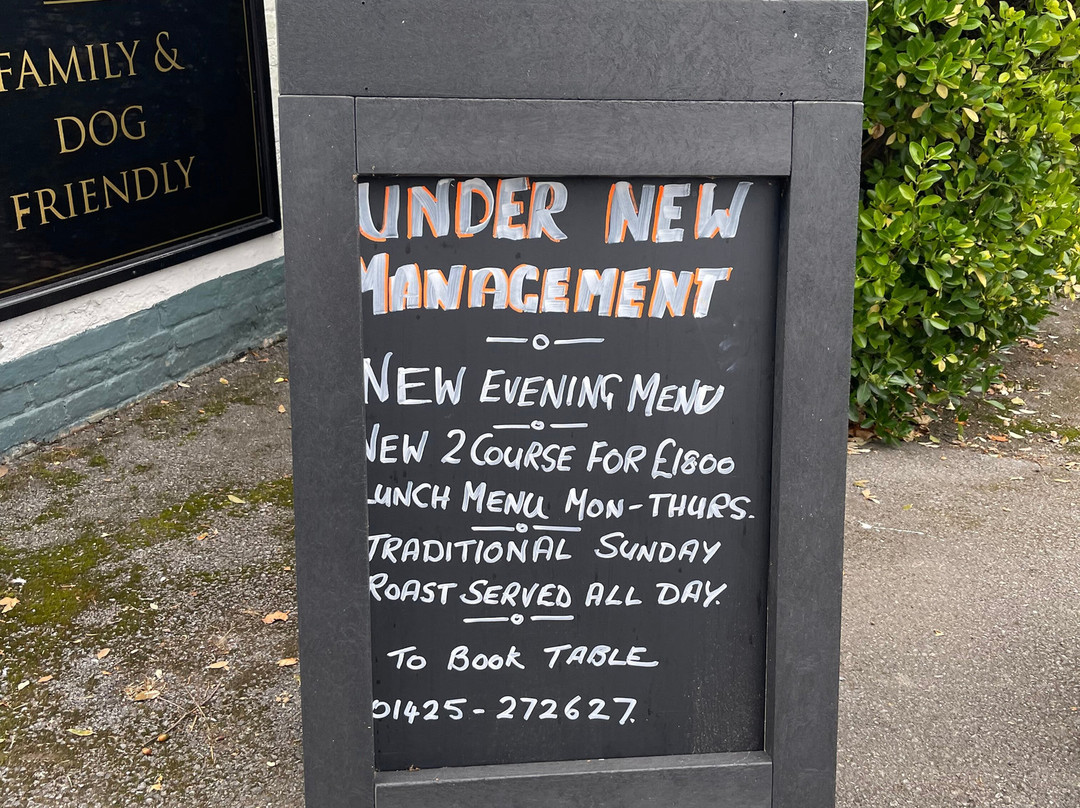 FAMILY &
DOG
FRIENDLY
UNDER NEW
MANAGEMENT
NEW EVENING MENU
NEW 2 COURSE FOR £1800
LUNCH MENU MON-THURS.
TRADITIONAL SUNDAY
ROAST SERVED ALL DAY.
TO BOOK TABLE
01425-272627.